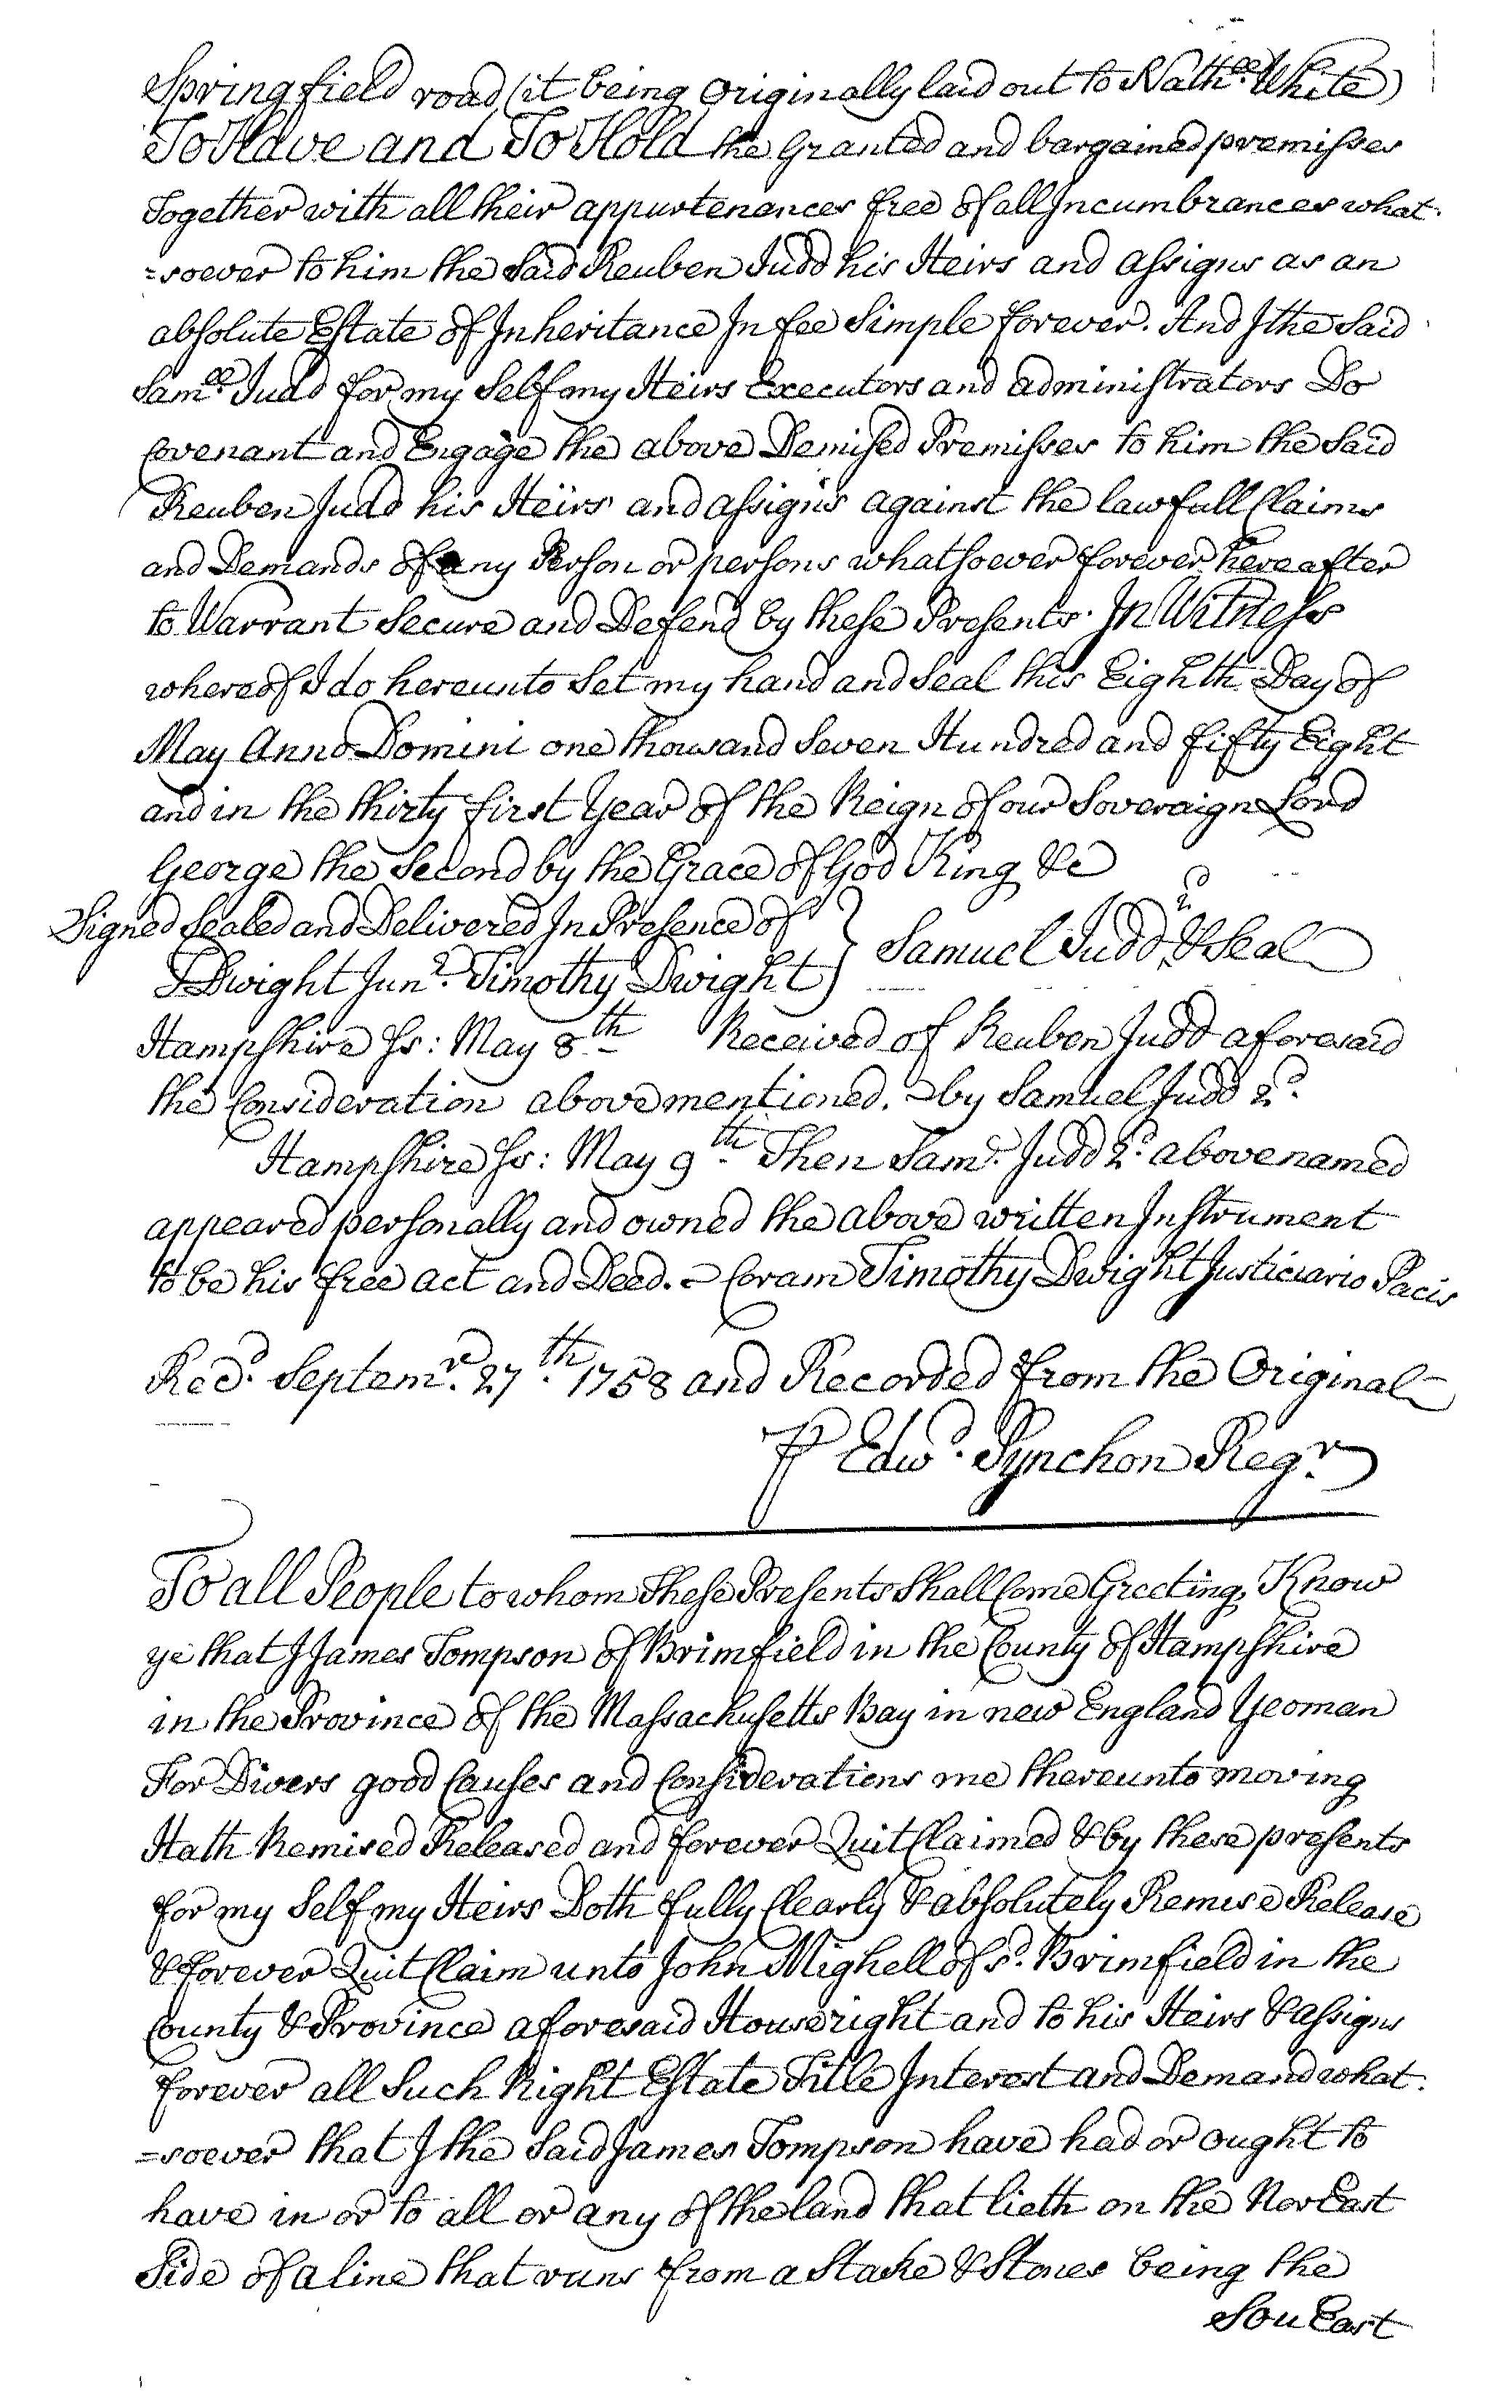 Springfield road (it being Originally laid out to Nath.ll White)
To Have and To Hold the Granted and bargained premisses
Together with all their appurtenances free of all Incumbrances what-
=soever to him the Said Reuben Judd his Heirs and assigns as an
absolute Estate of Inheritance In fee Simple forever. And I the Said
Sam.ll Judd for my Self my Heirs Executors and administrators Do
Covenant and Engage the above Demised Premisses to him the Said
Reuben Judd his Heirs and assigns against the lawfull Claims
and Demands of any Person or persons whatsoever forever hereafter
to Warrant Secure and Defend by these Presents. In Witness
whereof I do hereunto Set my hand and Seal this Eighth Day of
May Anno Domini one thousand Seven Hundred and fifty Eight
and in the thirty first Year of the Reign of our Soveraign Lord
George the Second by the Grace of God King &c
Signed Sealed and Delivered In Presence of } Samuel Judd 2.d & Seal
T Dwight Jun.r Timothy Dwight
Hampshire Ss: May 8.th Received of Reuben Judd aforesaid
the Consideration abovementioned. by Samuel Judd 2.d
Hampshire Ss: May 9.th Then Sam.l Judd 2.d abovenamed
appeared personally and owned the above written Instrument
to be his free act and Deed. Coram Timothy Dwight Justiciario Pacis
Rec.d Septem.r 27.th 1758 and Recorded from the Original
P Edw.d Pynchon Reg.r
To all People to whom These Presents Shall Come Greeting, Know
ye that I James Tompson of Brimfield in the County of Hampshire
in the Province of the Massachusetts Bay in new England Yeoman
For Divers good Causes and Considerations me thereunto moving
Hath Remised Released and forever Quit Claimed & by these presents
for my Self my Heirs Doth fully Clearly & absolutely Remise Release
& forever Quit Claim unto John Mighell of s.d Brimfield in the
County & Province aforesaid Houseright and to his Heirs & assigns
forever all Such Right Estate Title Interest and Demand what-
=soever that I the Said James Tompson have had or ought to
have in or to all or any of the land that lieth on the Nor East
Side of a line that runs from a Stake & Stones being the
Sou East